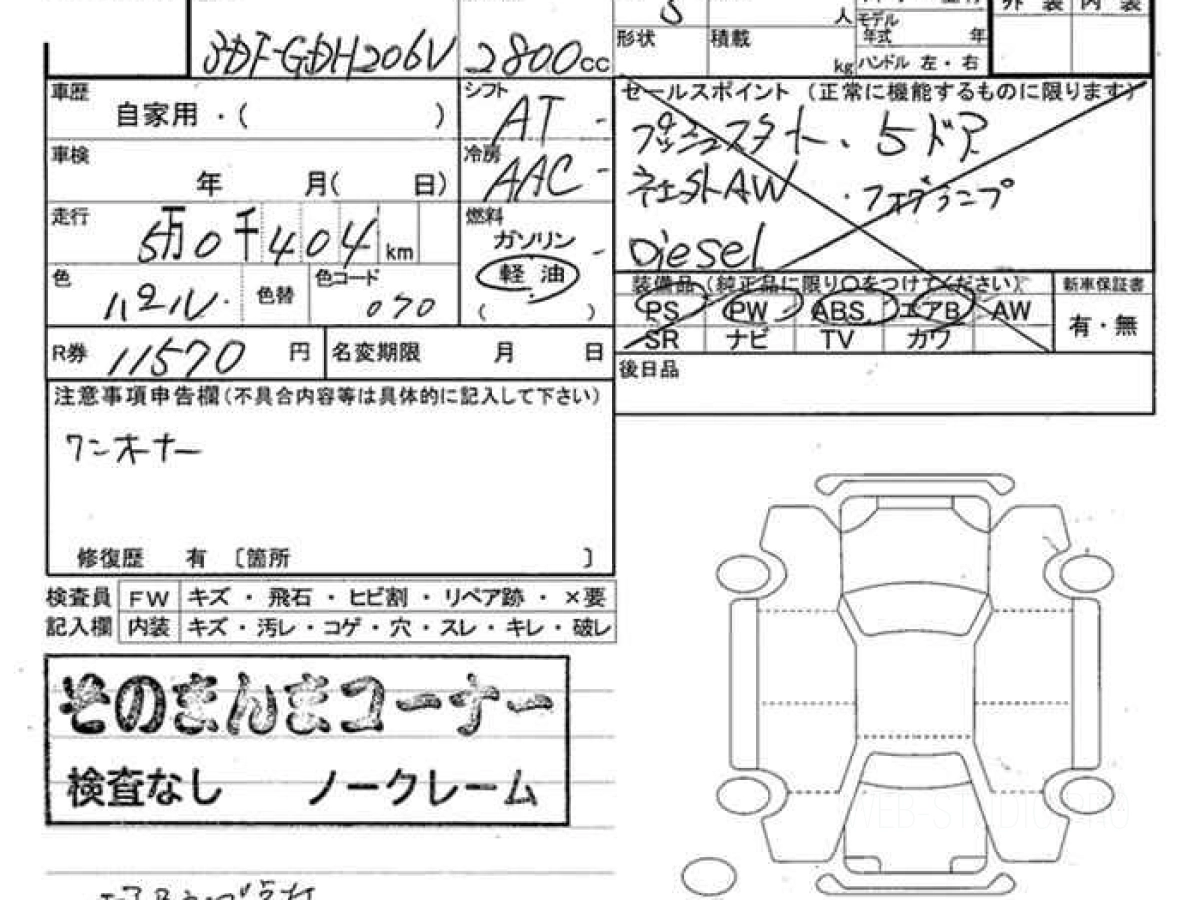 3DF-GDH206V 2800cc
5 人
形状 積載 kg
モデル年式 年
ハンドル 左・右
外装 内装
車歴 自家用・( )
シフト AT
車検 年 月( 日)
冷房 AAC
走行 5万0千404 km
燃料 ガソリン
軽油
( )
色 パール 色替 色コード 070
R券 11570 円 名変期限 月 日
注意事項申告欄(不具合内容等は具体的に記入して下さい)
ワンオーナー
修復歴 有 〔箇所 〕
検査員 FW キズ・飛石・ヒビ割・リペア跡・×要
記入欄 内装 キズ・汚レ・コゲ・穴・スレ・キレ・破レ
そのまんまコーナー
検査なし ノークレーム
セールスポイント (正常に機能するものに限ります)
プッシュスタート、5ドア
社外AW・フォグランプ
Diesel
装備品(純正品に限り○をつけてください) 新車保証書
PS PW ABS エアB AW 有・無
SR ナビ TV カワ
後日品